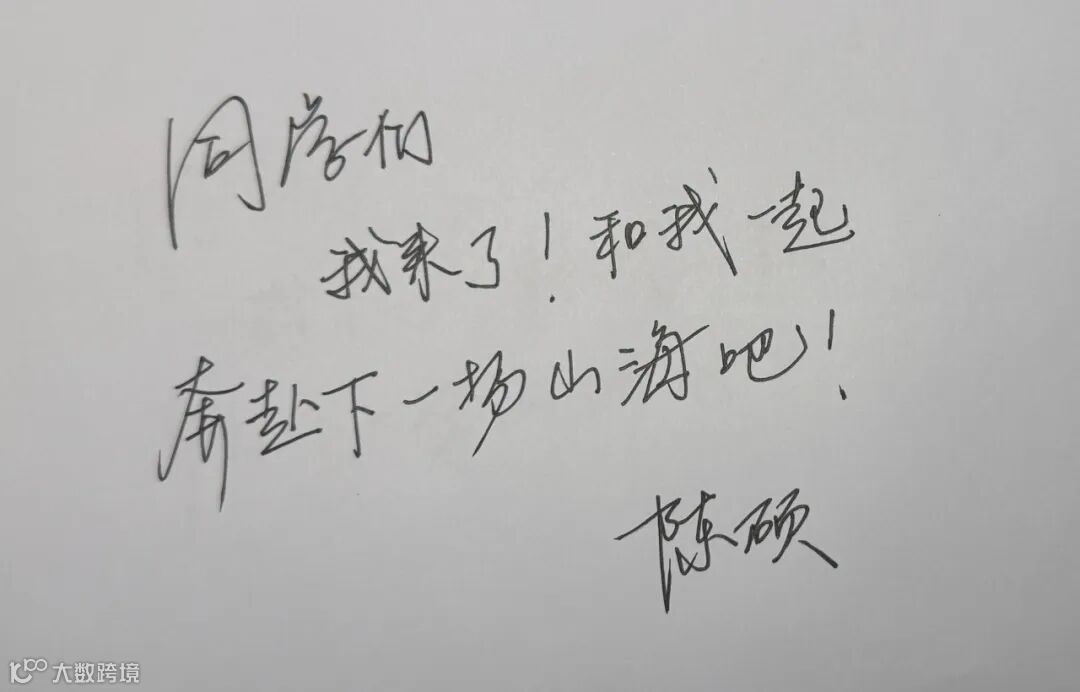 同学们
我来了！和我一起
奔赴下一场山海吧！
陈硕
大数跨境